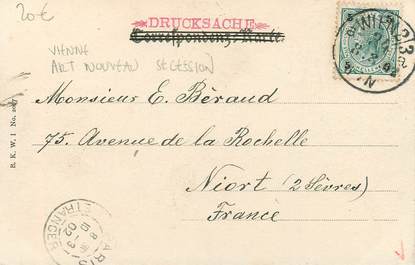 20€
DRUCKSACHE
Correspondenz-Karte
VIENNE
ART NOUVEAU SECESSION
Monsieur E. Béraud
75. Avenue de la Rochelle
Niort (2 Sèvres)
France
B. K. W. I No.
WIEN
PARIS
ETRANGER